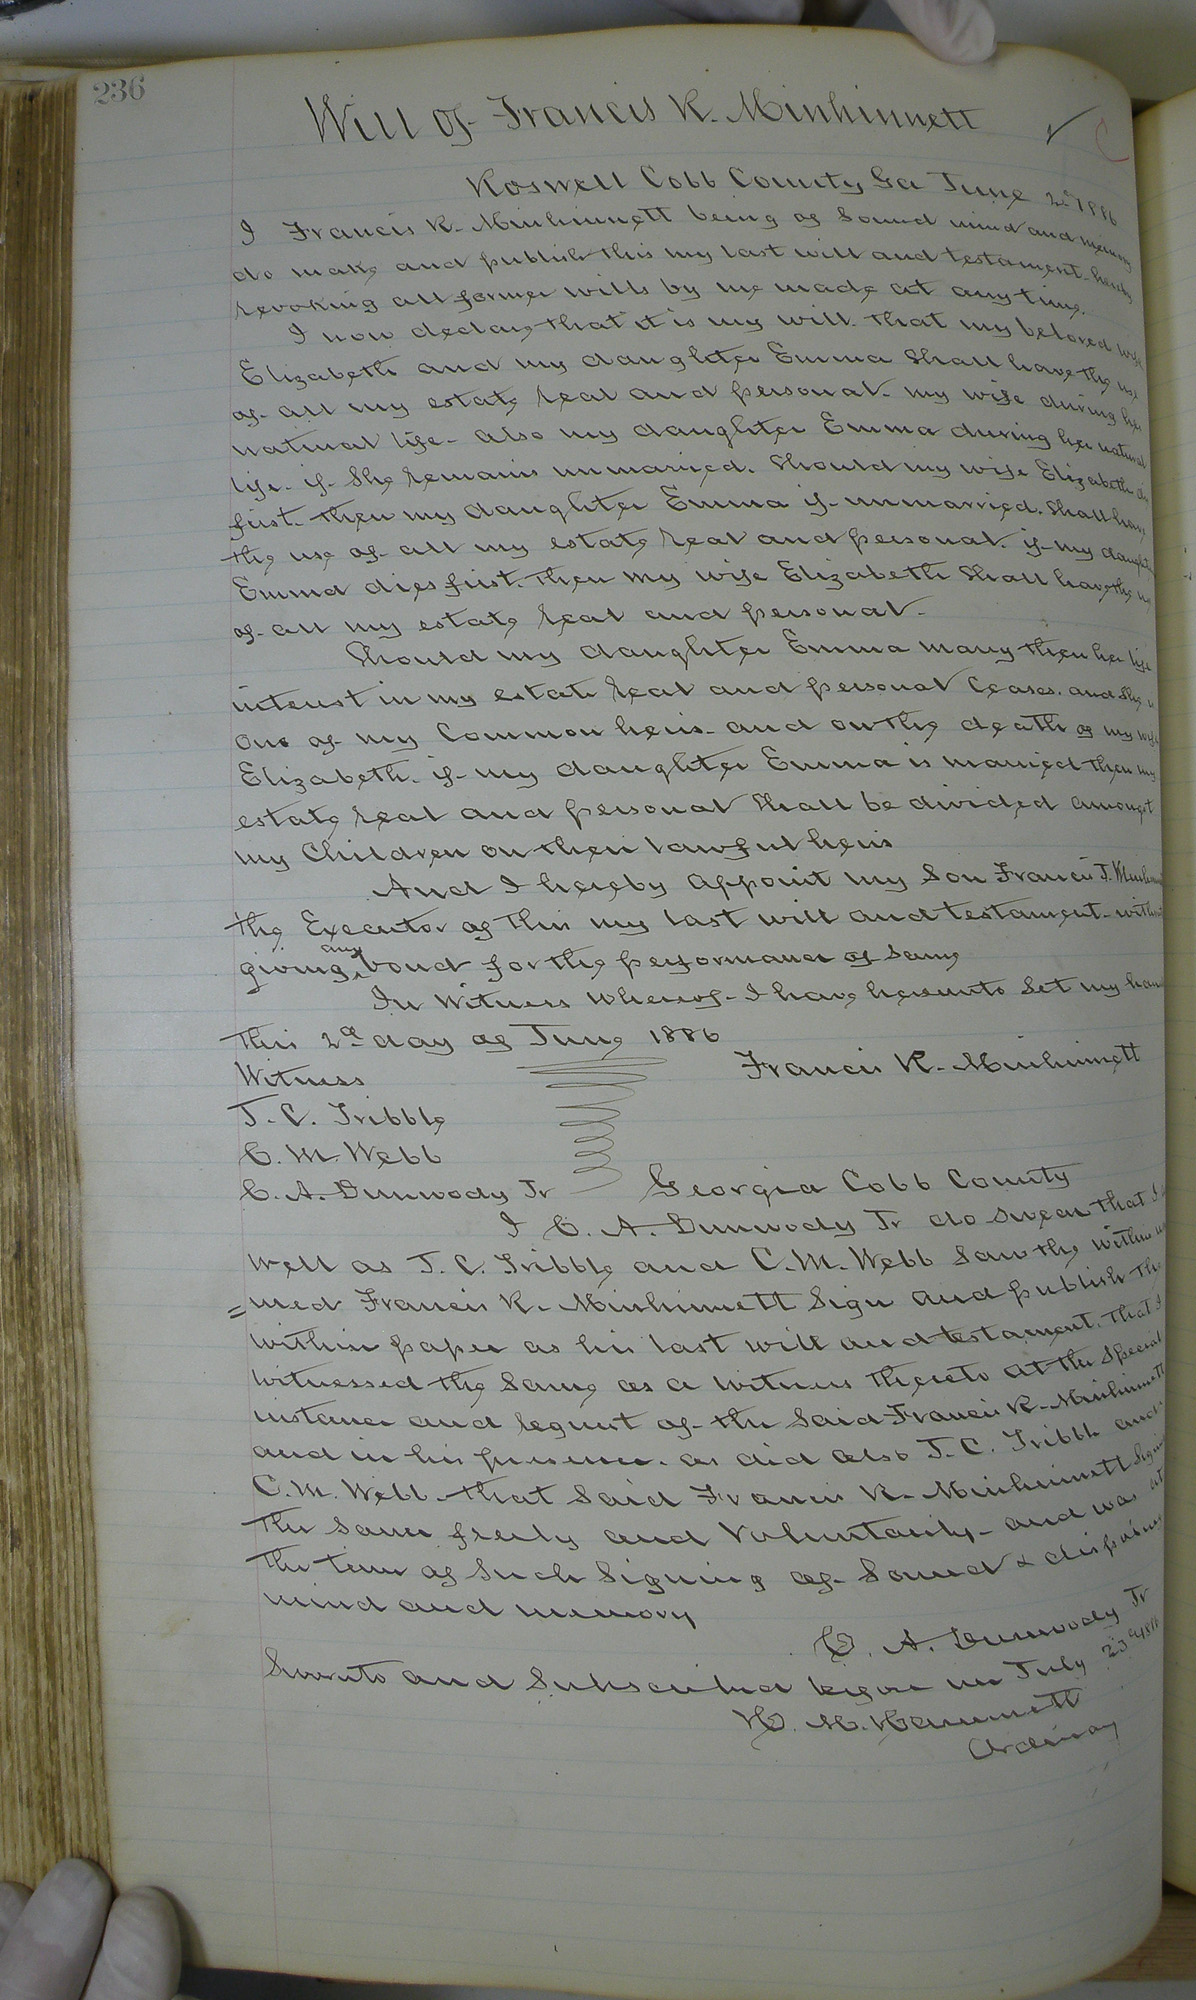 236
Will of Francis R. Minhinnett
Roswell Cobb County Ga June 2d 1886
I Francis R. Minhinnett being of Sound mind and memory
do make and publish this my last will and testament. hereby
revoking all former wills by me made at any time.
I now declare that it is my will. that my beloved wife
Elizabeth and my daughter Emma Shall have the use
of all my estate real and personal. my wife during her
natural life. also my daughter Emma during her natural
life. if She remains unmarried. Should my wife Elizabeth die
first. then my daughter Emma if unmarried. Shall have
the use of all my estate real and personal. if my daughter
Emma dies first. then my wife Elizabeth Shall have the use
of all my estate real and personal.
Should my daughter Emma marry then her life
interest in my estate real and personal Ceases. and She
One of my Common heirs. and on the death of my wife
Elizabeth. if my daughter Emma is married then my
estate real and personal Shall be divided amongst
my Children or their lawful heirs
And I hereby appoint my Son Francis J. Minhinnett
the Executor of this my last will and testament. without
giving any bond for the performance of Same
In Witness whereof I have hereunto Set my hand
this 2d day of June 1886
Witness Francis R. Minhinnett
J. C. Tribble
C. M. Webb
C. A. Dunwody Jr Georgia Cobb County
I C. A. Dunwody Jr do Swear that I
well as J. C. Tribble and C. M. Webb Saw the within
=med Francis R. Minhinnett Sign and publish the
within paper as his last will and testament. that I
witnessed the Same as a witness thereto at the Special
instance and request of the Said Francis R. Minhinnett
and in his presence. as did also J. C. Tribble and
C. M. Webb. that Said Francis R. Minhinnett Signed
the Same freely and Voluntarily. and was at
the time of Such Signing of Sound & disposing
mind and memory
C. A. Dunwody Jr
Sworn to and Subscribed before me July 23d 1886
H. M. Hammett
Ordinary